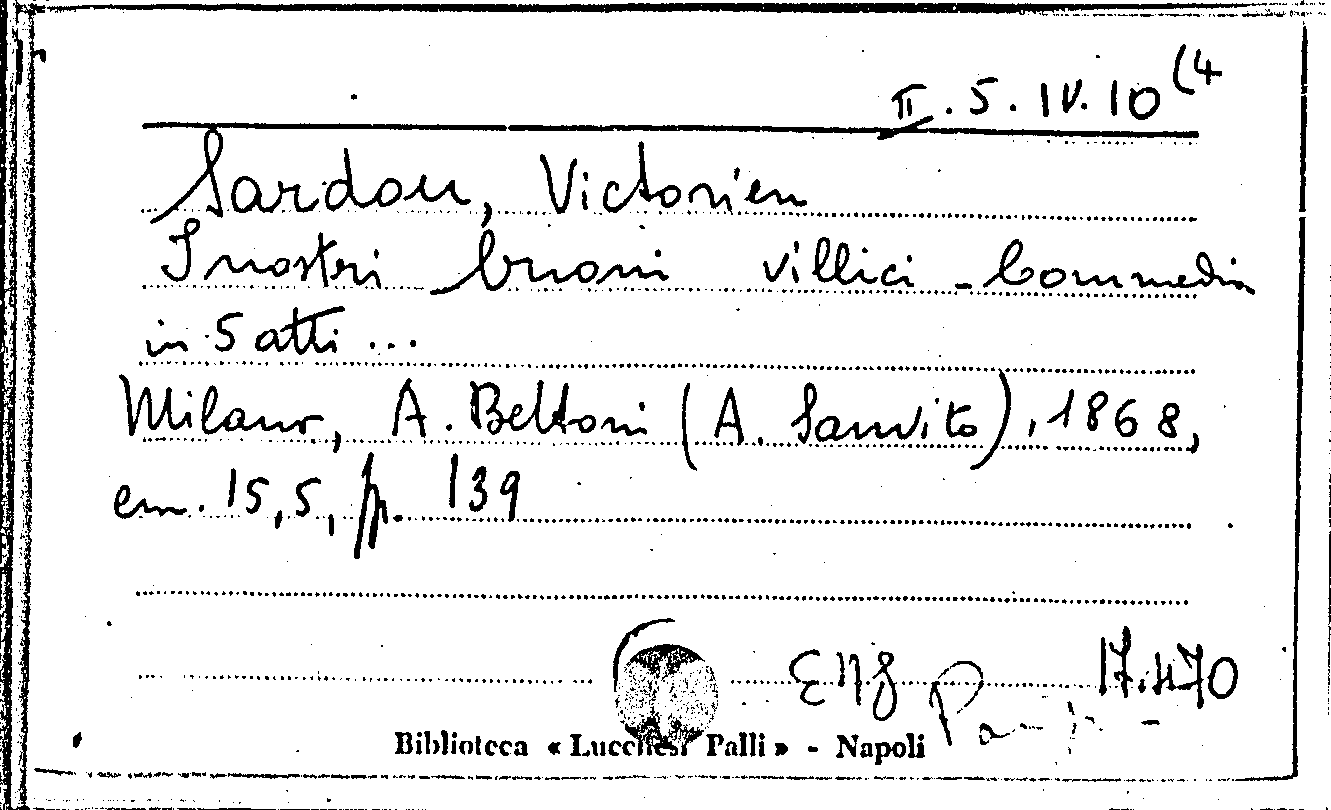 II. 5. IV. 10 (4
Sardou, Victorien
I nostri buoni villici - Commedia
in 5 atti ...
Milano, A. Bettoni (A. Sanvito), 1868,
cm. 15,5, pp. 139
17.470
Biblioteca « Lucchesi Palli » - Napoli